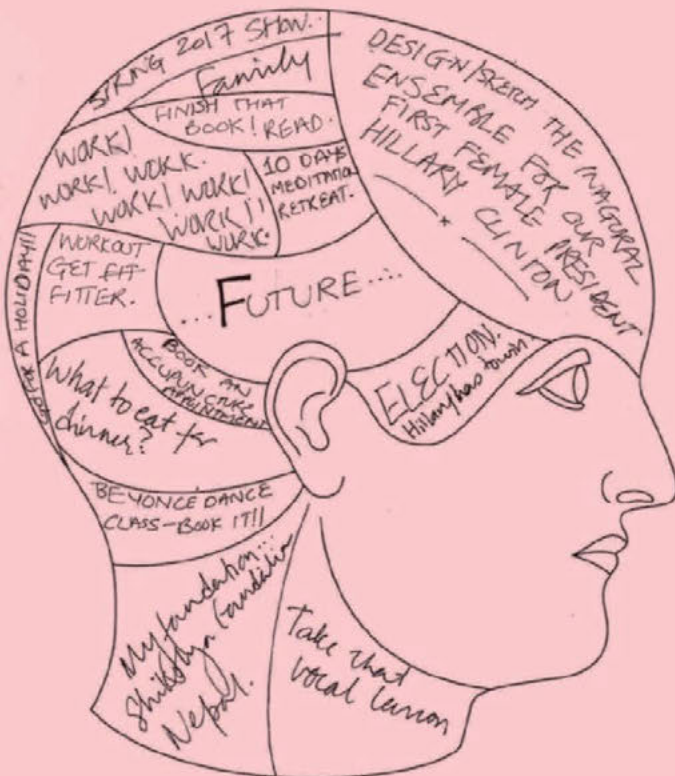 SPRING 2017 SHOW..
Family
FINISH THAT
BOOK! READ.
WORK!
WORK! WORK.
WORK! WORK!
WORK!!
WORK.
10 DAYS
MEDITATION
RETREAT.
DESIGN/SKETCH THE INAGURAL
ENSEMBLE FOR OUR
FIRST FEMALE PRESIDENT
HILLARY CLINTON
A HOLIDAY!!
WORKOUT
GET FIT-
FITTER.
...FUTURE....
BOOK AN
ACCUPUNCTURE
APPOINTMENT
ELECTION.
Hillary has to win.
What to eat for
dinner?
BEYONCE DANCE
CLASS-BOOK IT!!
My foundation...
Shikshya Foundation
Nepal.
Take that
vocal lesson